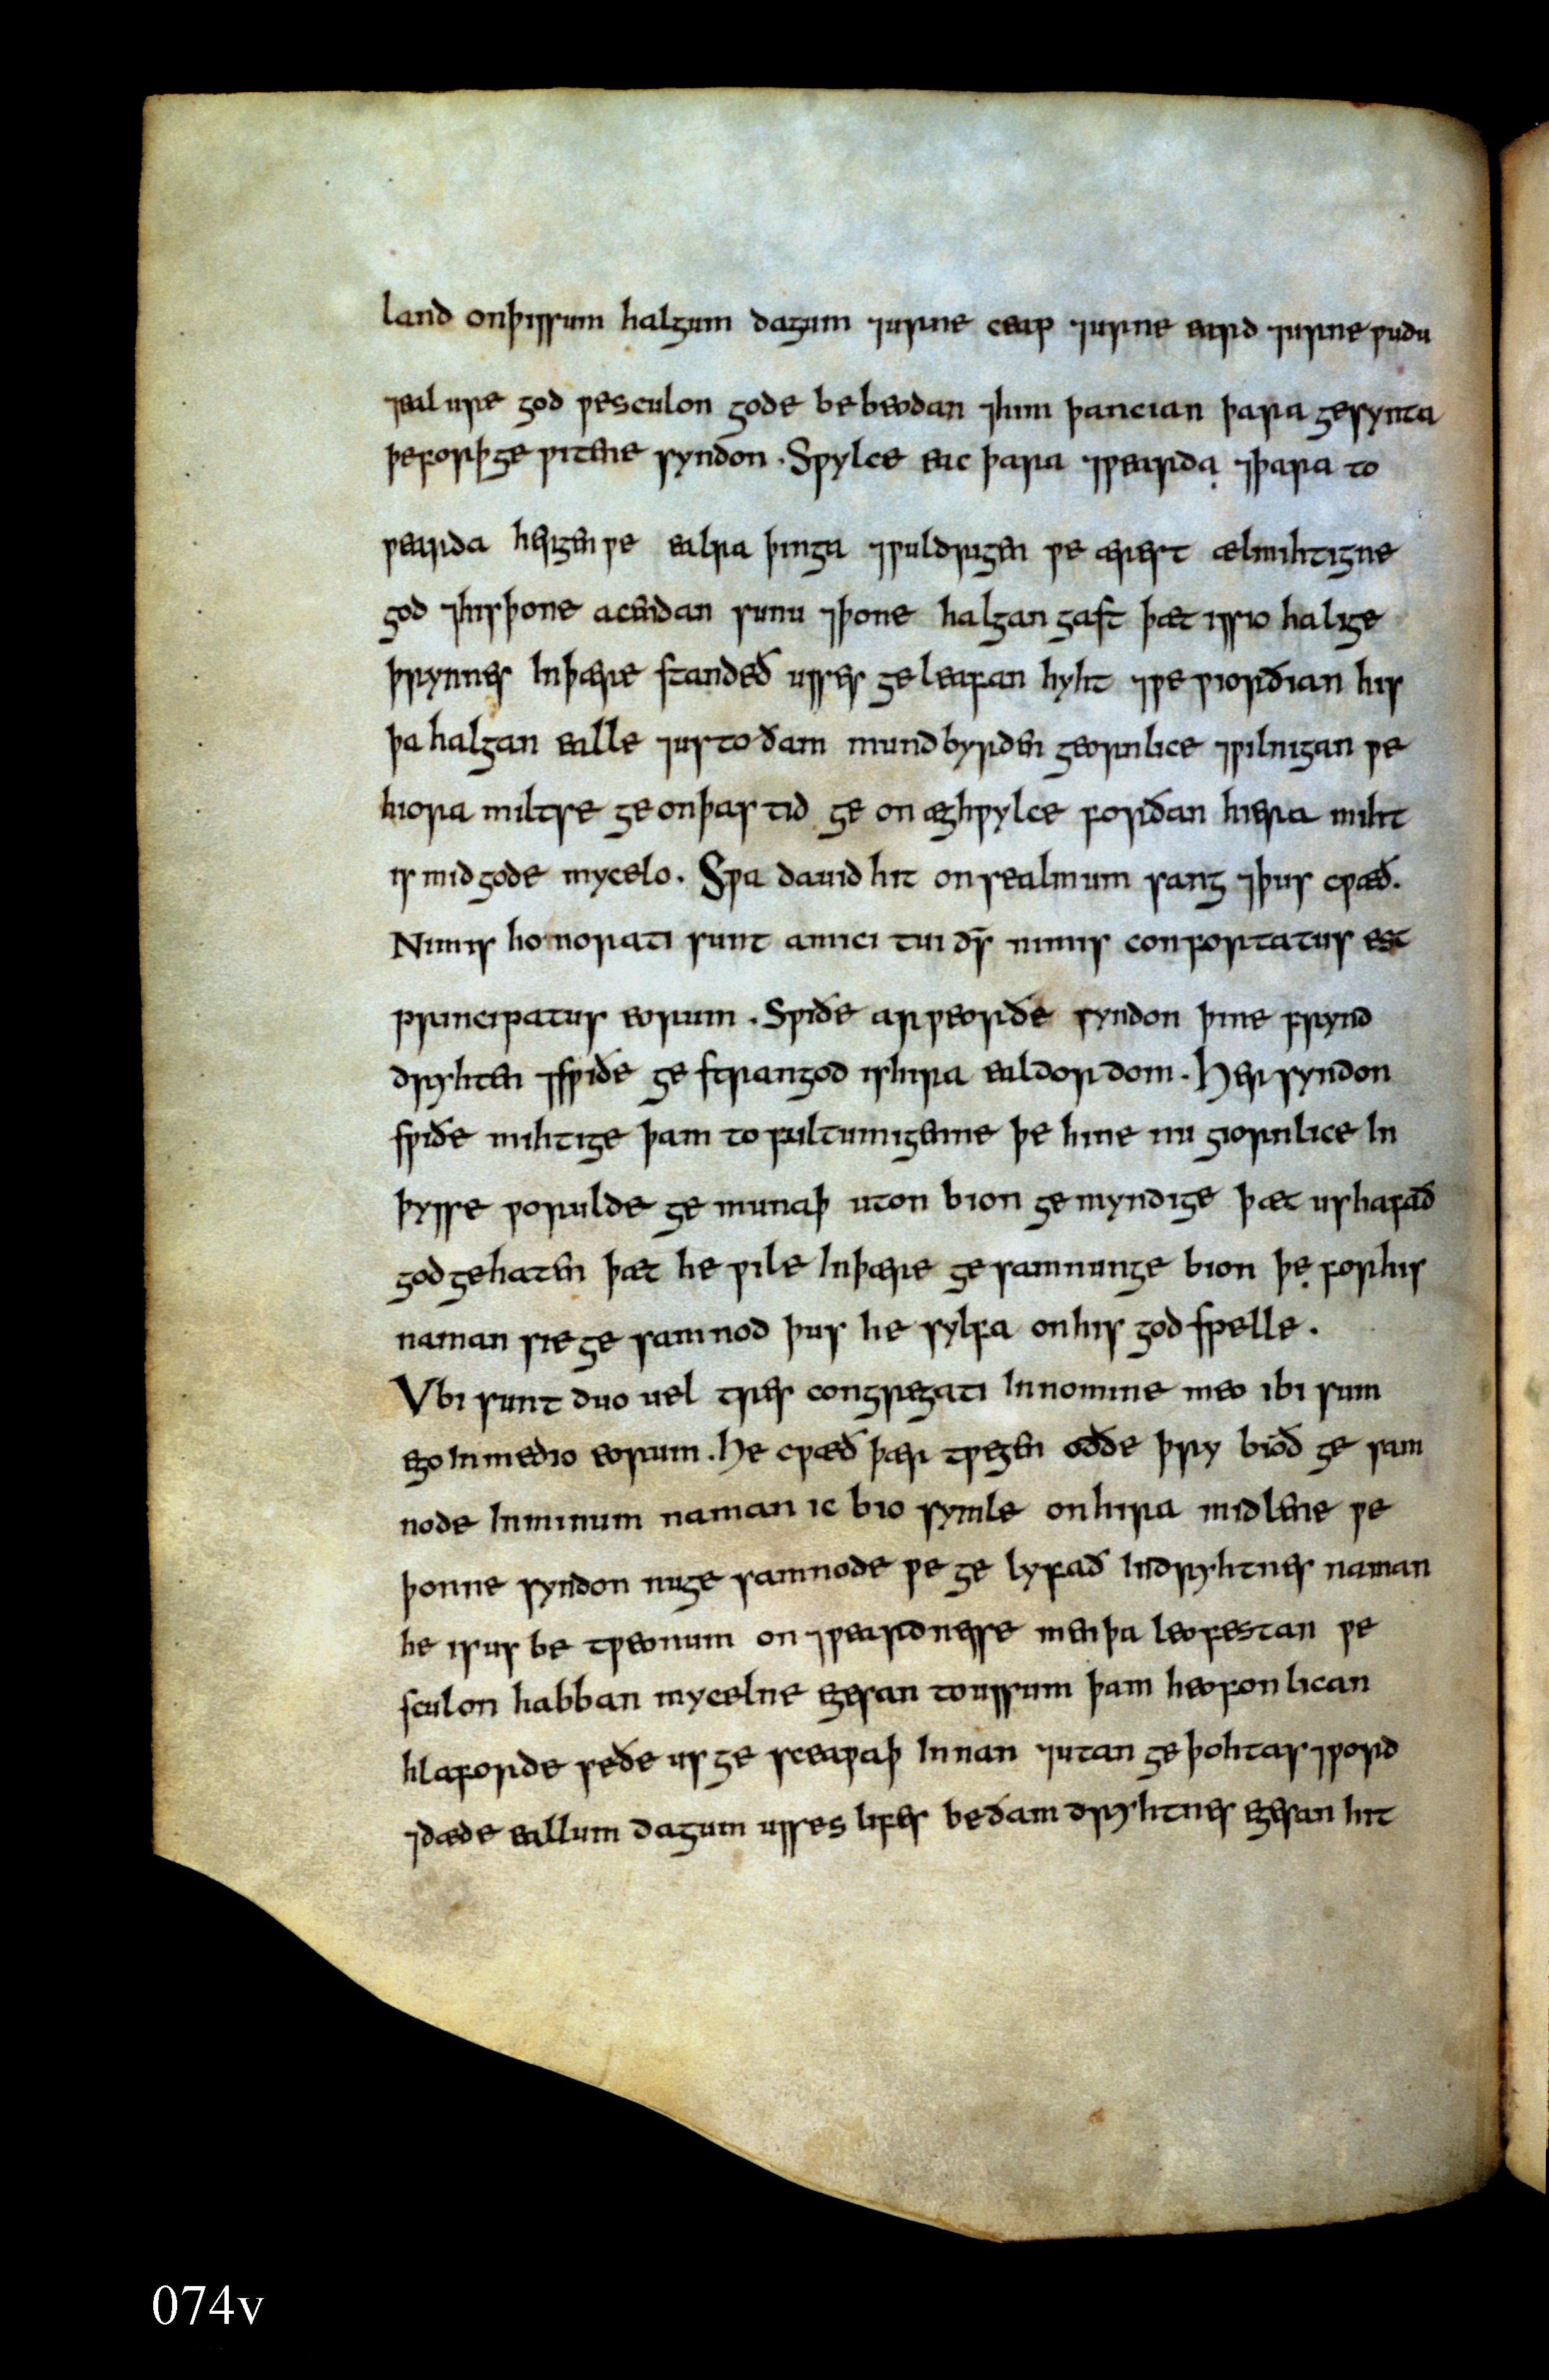 land onþissum halgum dagum ⁊urne ceap ⁊urne eard ⁊urne ƿudu
⁊eal ure god ƿesculon gode bebeodan ⁊him þancian þara gesynta
þeforþge ƿitene syndon. Sƿylce eac þara ⁊ƿearda ⁊þara to
ƿearda herigen ƿe ealra þinga ⁊ƿuldrigen ƿe ærest ælmihtigne
god ⁊hisþone acendan sunu ⁊þone halgan gast þæt issio halige
þrynnes Inþære standeð usses geleafan hyht ⁊ƿe ƿiorðian his
þa halgan ealle ⁊ustoðam mundbyrden geornlice ⁊ƿilnigan ƿe
hiora miltse ge onþas tid ge on æghƿylce forðan hiera miht
is mid gode mycelo. Sƿa dauid hit on sealmum sang ⁊þus cƿæð.
Nimis honorati sunt amici tui ds̄ nimis confortatus est
principatus eorum. Sƿiðe arƿeorðe syndon þine frynd
dryhten ⁊sƿiðe gestrangod ishira ealdordom. Her syndon
sƿiðe mihtige þam to fultumigenne þe hine nu giornlice In
þysse ƿorulde ge munaþ uton bion gemyndige þæt us hafað
god gehaten þæt he ƿile Inþære gesamnunge bion þe forhis
naman sie gesamnod þus he sylfa onhis godspelle.
Vbi sunt duo uel tres congregati Innomine meo ibi sum
ego Inmedio eorum. He cƿæð þær tƿegen oððe þry bioð ge sam
node Inminum naman ic bio symle onhira midlene ƿe
þonne syndon nuge samnode ƿe ge lyfað Indryhtnes naman
he isus be tƿeonum on ⁊ƿeardnesse men þa leofestan ƿe
sculon habban mycelne egesan toussum þam heofonlican
hlaforde seðe us ge sceapaþ Innan ⁊utan geþohtas ⁊ƿord
⁊dæde eallum dagum usses lifes beðam dryhtnes egesan hit
074v